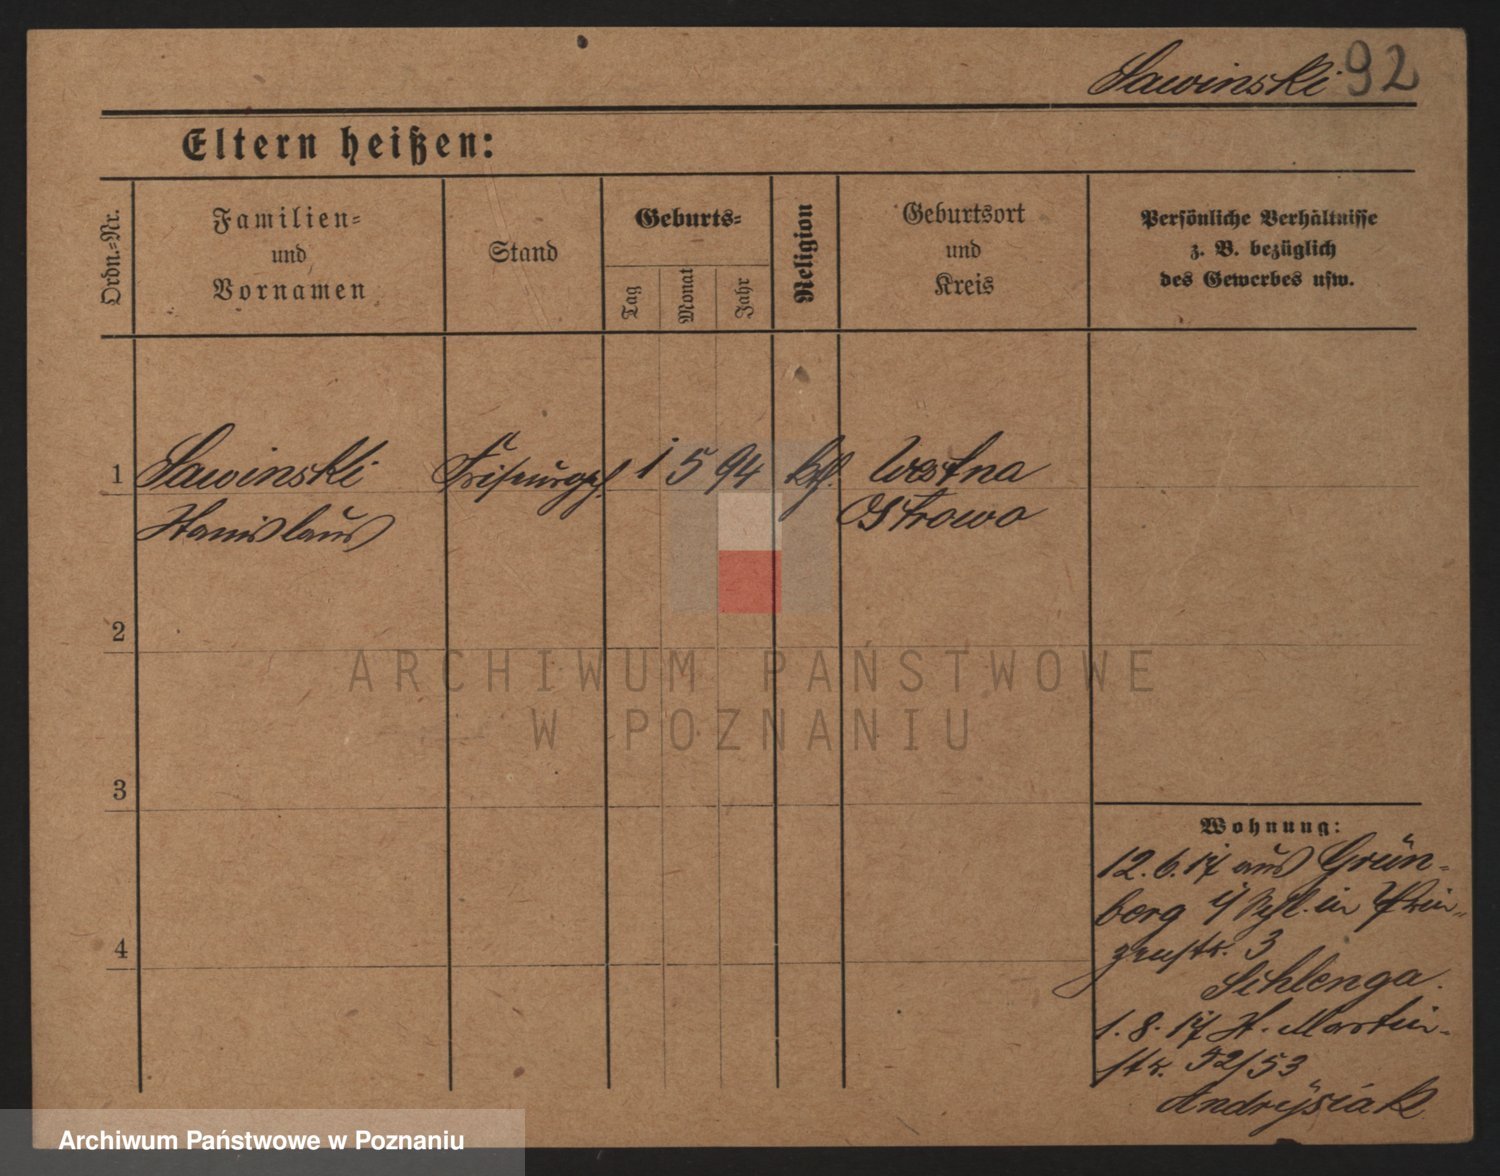 Sawinski 92
Eltern heißen:
Ordn.-Nr.
Familien-
und
Vornamen
Stand
Geburts-
Tag
Monat
Jahr
Religion
Geburtsort
und
Kreis
Persönliche Verhältnisse
z. B. bezüglich
des Gewerbes usw.
1 Sawinski 1 5 94 kth.
Stanislaus Ostrowo
2
3
4
ARCHIWUM PAŃSTWOWE
W POZNANIU
Wohnung:
12.6.17 aus Grün-
berg i/Schl. in Prin-
zenstr. 3
Schlenga.
1.8.17 St. Martin-
str. 52/53
Andrysiak
Archiwum Państwowe w Poznaniu